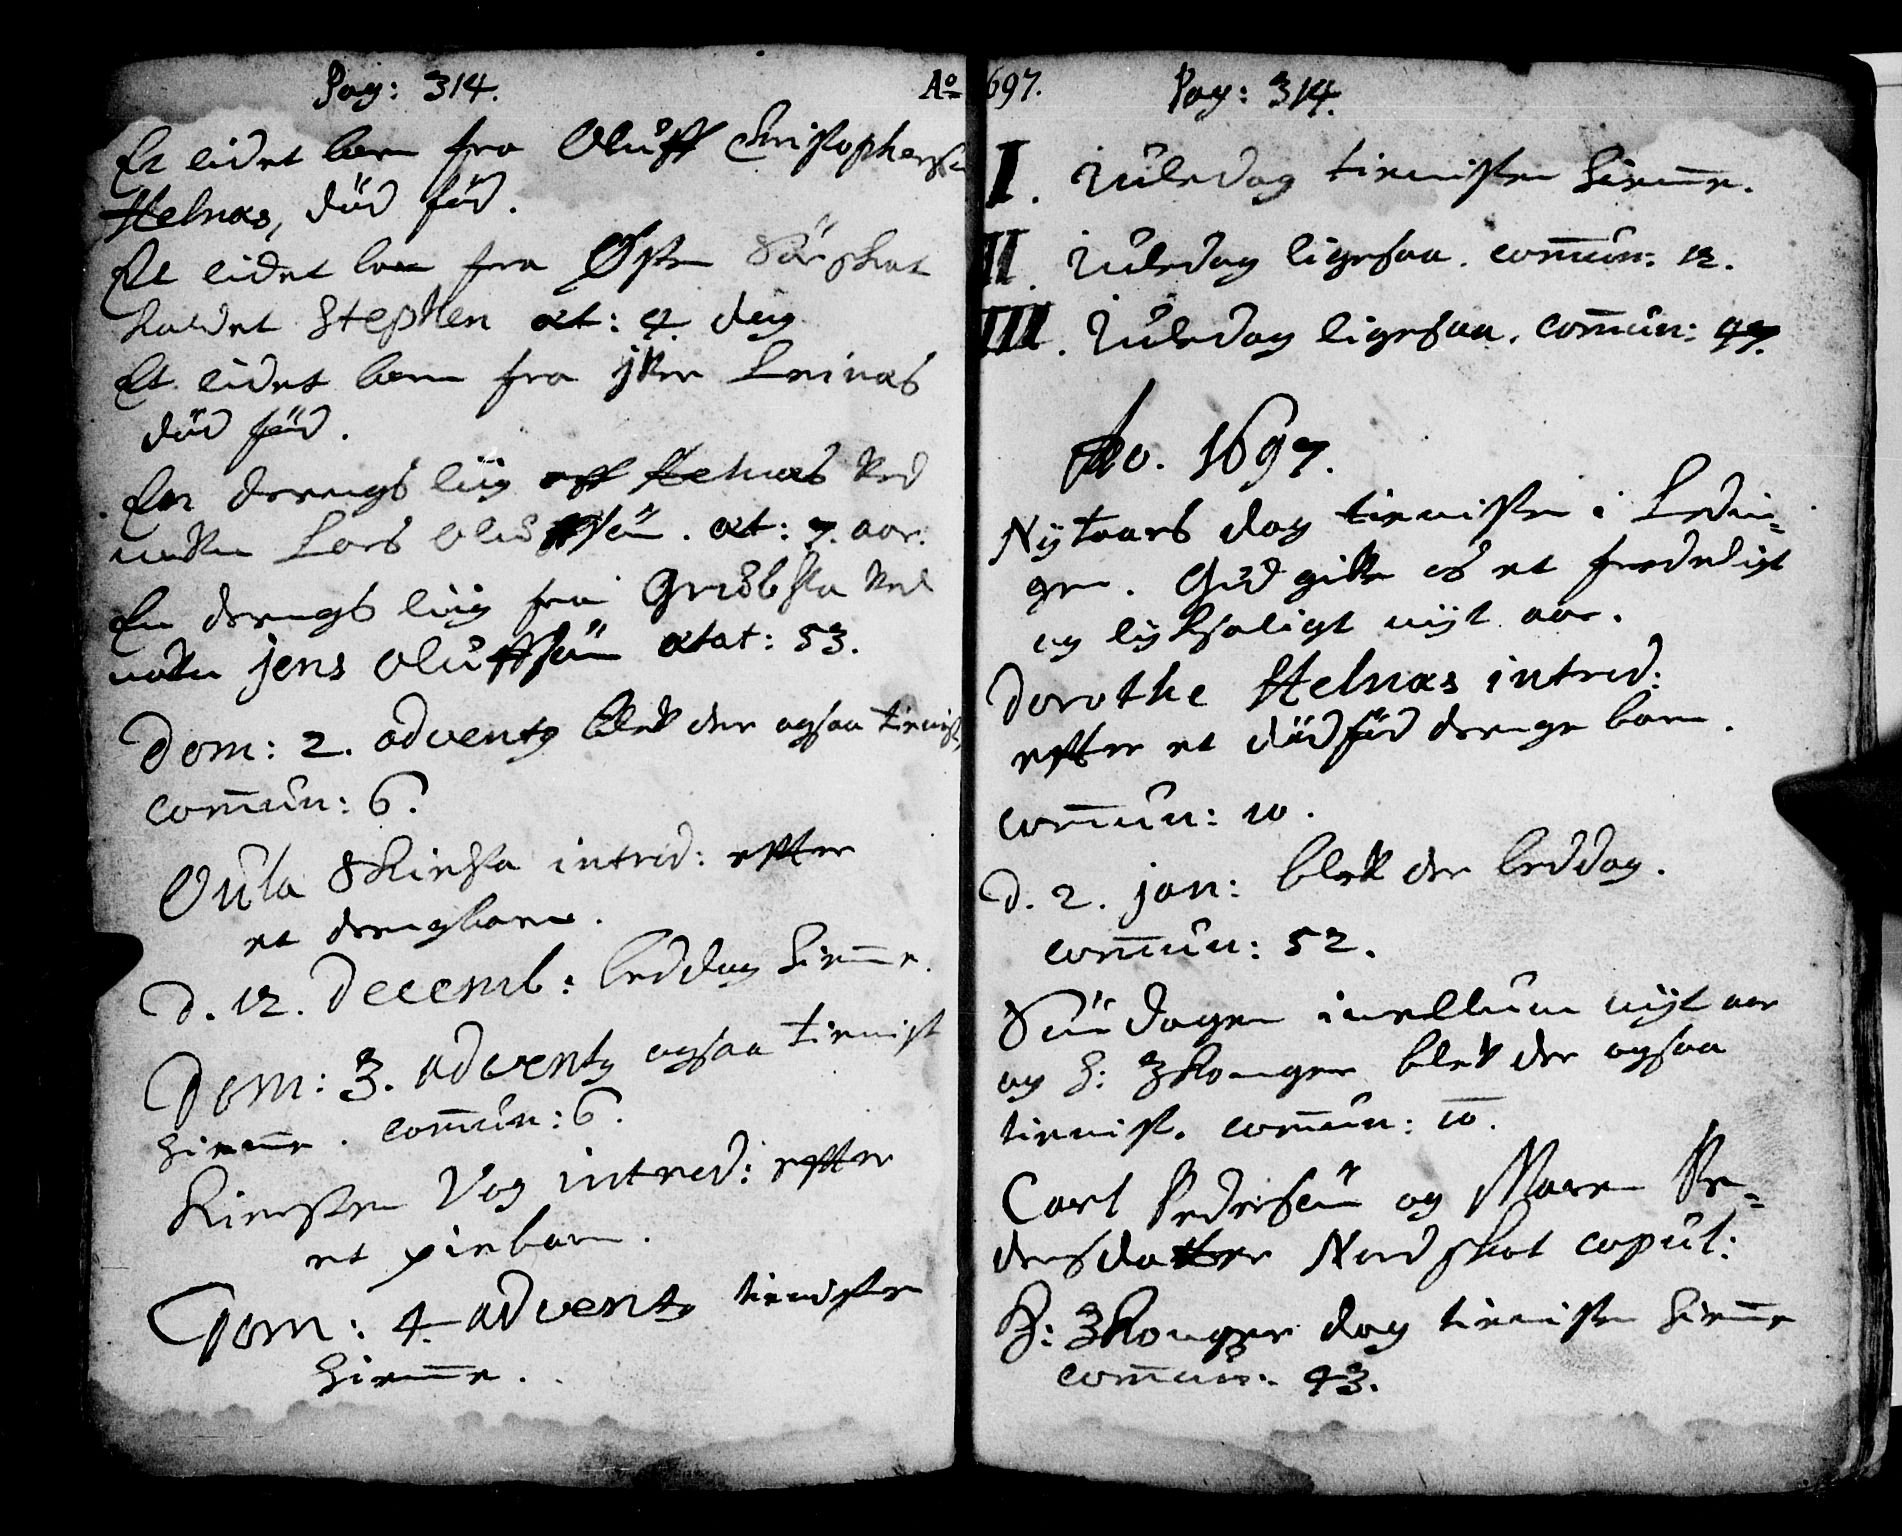 Pag: 314.
Et lidet barn fra Oluff Christophersen
Helnæs, död föd.
Et lidet barn fra Østen Sörskat
kaldet Stephen æt: 4 dag
Et lidet barn fra jver Leinæs
död föd.
En drengs liig aff Helnæs ved
naffn Lars Oluffsön. æt: 7. aar.
En drengs liig fra ved
naffn jens Oluffsön ætat: 53.
Dom: 2. advent9 bleff der ogsaa tienist,
com̄un: 6.
Oula Skiesta introd: effter
et drengbarn.
D. 12. Decemb: beddag hiem̄e.
Dom: 3. advent9 ogsaa tienist
hiem̄e. com̄un: 6.
Kiersten Vag introd: effter
et piebarn.
Dom: 4 advent9 tienisten
hiem̄e.
Ao 697.
Pag: 314.
I. Juledag tienisten hiem̄e.
II. Juledag ligesaa. com̄un: 12.
III. Juledag ligesaa. com̄un: 47.
Ao. 1697.
Nytaars dag tienisten i Ledin=
gen. Gud giffve os et fredeligt
og lyksaligt nyt aar.
Dorothe Helnæs introd:
effter et dödföd drenge barn.
com̄un: 10.
D. 2. jan: bleff der beddag.
com̄un: 52.
Söndagen imellum nyt aar
og H: 3 Konger bleff der ogsaa
tienist. com̄un: 10.
Carl Pedersön og Maren Pe=
dersdatter Nordskot copul:
H: 3 Konger dag tienisten hiem̄e
com̄un: 43.